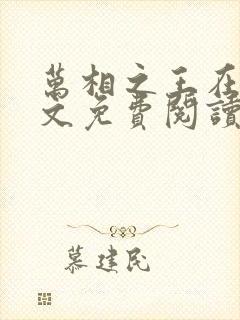 萬相之王在
文免費閱讀
慕建民